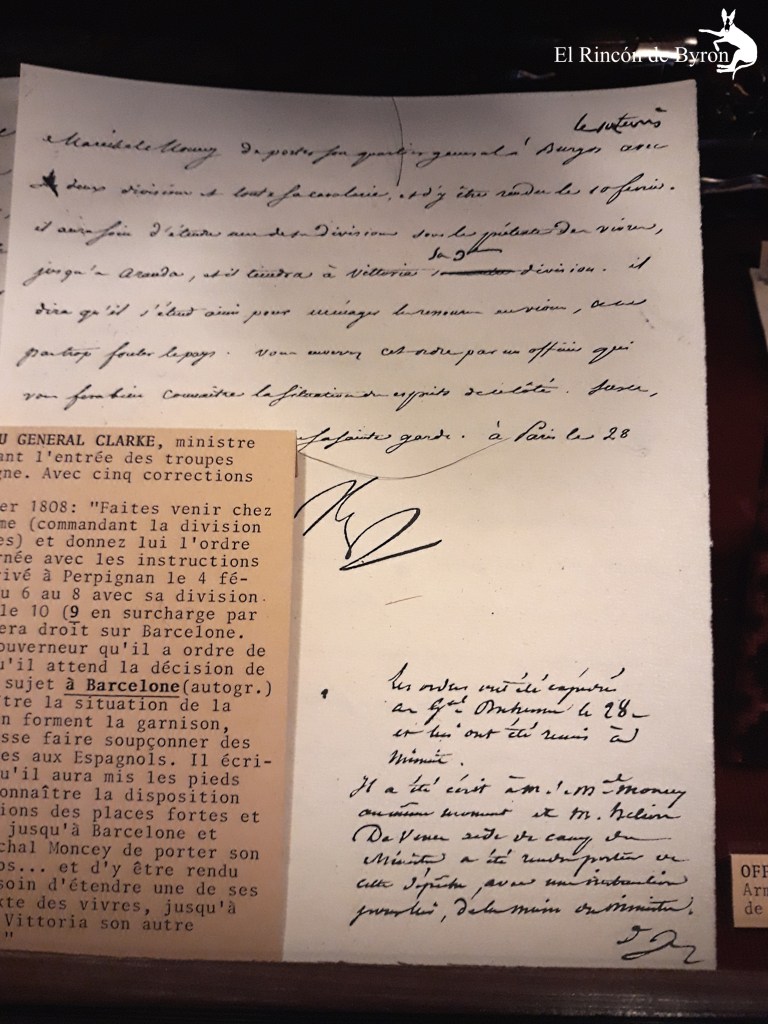 El Rincón de Byron
Maréchal Moncey de porter son quartier général à Burgos avec
deux divisions et toute sa cavalerie, et d'y être rendu le 10 février.
il aura soin d'étendre une de ses divisions sous le prétexte des vivres,
jusqu'à Aranda, et il tiendra à Vittoria sa division. il
dira qu'il s'étend ainsi pour ménager les ressources en vivres, et ne
pas trop fouler le pays. Vous enverrez cet ordre par un officier qui
vous fera bien connaître la situation des esprits de ce côté. Sur ce,
sa sainte garde. à Paris le 28
U GENERAL CLARKE, ministre
ant l'entrée des troupes
gne. Avec cinq corrections
er 1808: "Faites venir chez
me (commandant la division
es) et donnez lui l'ordre
rnée avec les instructions
rivé à Perpignan le 4 fé-
u 6 au 8 avec sa division
le 10 (9 en surcharge par
era droit sur Barcelone.
ouverneur qu'il a ordre de
u'il attend la décision de
sujet à Barcelone(autogr.)
ître la situation de la
n forment la garnison,
sse faire soupçonner des
es aux Espagnols. Il écri-
u'il aura mis les pieds
onnaître la disposition
ions des places fortes et
jusqu'à Barcelone et
chal Moncey de porter son
os... et d'y être rendu
soin d'étendre une de ses
xte des vivres, jusqu'à
Vittoria son autre
"
Les ordres ont été expédiés
au Gal Duhesme le 28
et lui ont été remis à
Minuit.
Il a été écrit à M. le Mal Moncey
au même moment et M.
aide de camp du
Ministre a été rendu porter
cette dépêche, avec une instruction
pour lui, de la main du ministre.
OFF
Arm
de